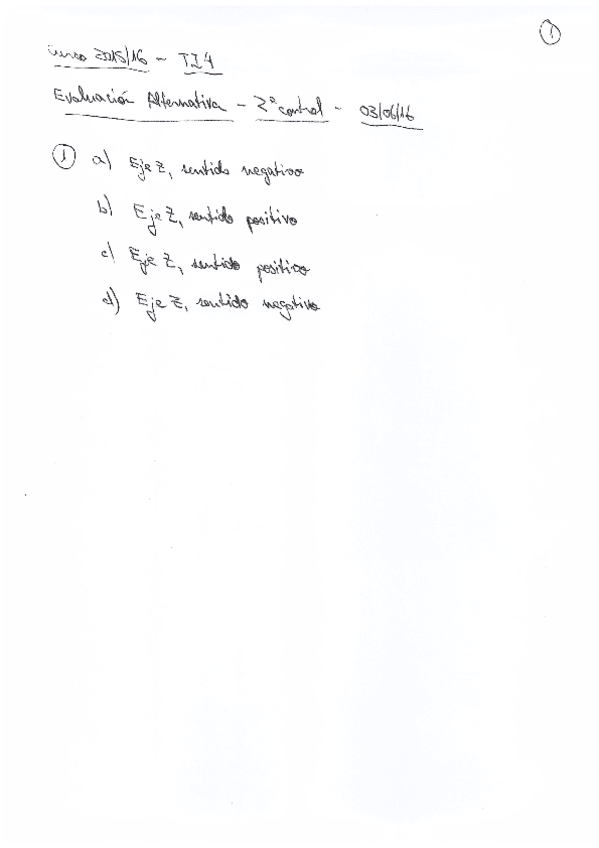 1
Curso 2015/16 - TI4
Evaluación Alternativa - 2º control - 03/06/16
1 a) Eje Z, sentido negativo
b) Eje Z, sentido positivo
c) Eje Z, sentido positivo
d) Eje Z, sentido negativo